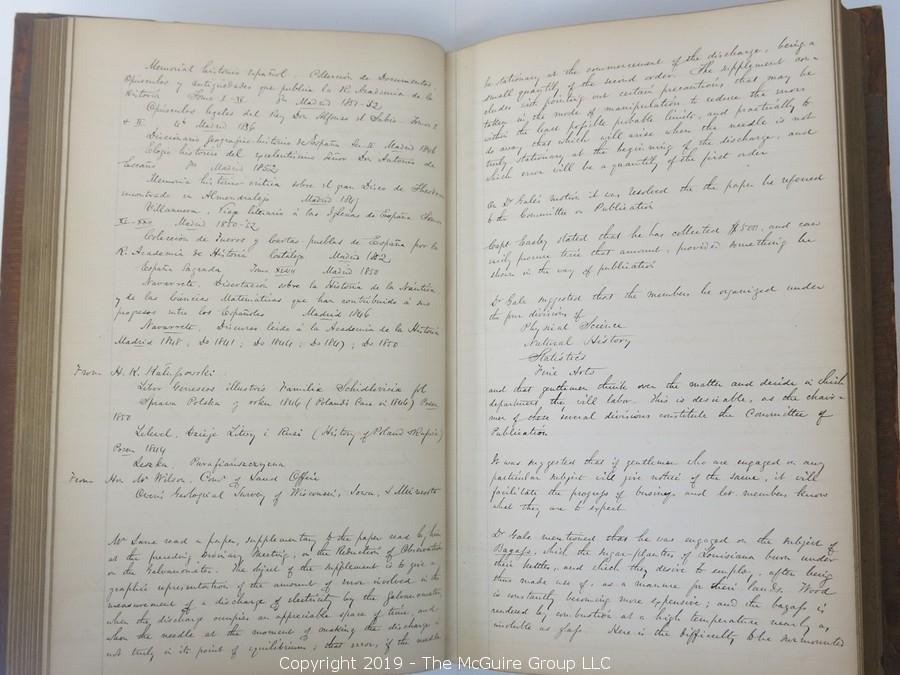 Memorial historico Español. Colleccion de Documentos,
Opusculos y antiguedades que publica la R. Academia de la
Historia Tomo I - IV 8vo Madrid 1851-52
Opusculos legales del Rey Don Alfonso el Sabio. Tomos I
& II 4to Madrid 1836
Diccionario geografico-historico de España Sec II Madrid 1846
Elogio historico del excelentisimo Señor Don Antonio de
Escaño 8vo Madrid 1852
Memoria historico-critica sobre el gran Disco de Theodosio
encontrado en Almendralejo Madrid 1849
Villanueva, Viage literario á las Iglesias de España Tomos
XI-XXII Madrid 1850-52
Coleccion de Fueros y Cartas-pueblas de España por la
R. Academia de Historia Catalogo Madrid 1852
España Sagrada Tomo XLVII Madrid 1850
Navarrete. Disertacion sobre la Historia de la Nautica
y de las Ciencias Matematicas que han contribuido á sus
progresos entre los Españoles Madrid 1846
Navarrete, Discurso leido á la Academia de la Historia
Madrid 1848; Do 1841; Do 1844; Do 1847; Do 1850
From H. K. Kalussowski:
Liber Geneseos illustris Familia Schidlovicia fol
Sprawa Polska w roku 1846 (Poland's Case in 1846) Posen
1850
Lelewel, Dzieje Litwy i Rusi (History of Poland & Russia)
Posen 1844
Leszka. Parafiańszczyzna
From Hon Mr Wilson, Comr of Land Office
Owen's Geological Survey of Wisconsin, Iowa, & Minnesota
Mr Lane read a paper, supplementary to the paper read by him
at the preceding Ordinary Meeting, on the Reduction of Observations
on the Galvanometer. The object of the supplement is to give a
graphic representation of the amount of error involved in the
measurement of a discharge of electricity by the Galvanometer,
when the discharge occupies an appreciable space of time, and
when the needle at the moment of making the discharge is
not truly in its point of equilibrium; that error, if the needle
be stationary at the commencement of the discharge, being a
small quantity of the second order. The supplement con-
cludes with pointing out certain precautions that may be
taken in the mode of manipulation to reduce the errors
within the least possible probable limits, and practically to
do away that which will arise when the needle is not
truly stationary at the beginning of the discharge, and
which error will be a quantity of the first order
On Dr Gale's motion it was resolved that the paper be referred
to the Committee on Publication
Capt. Easley stated that he has collected $500, and can
easily procure twice that amount, provided something be
shown in the way of publication
Dr Gale suggested that the members be organized under
the four divisions of
Physical Science
Natural History
Statistics
Fine Arts
and that gentlemen think over the matter and decide in which
department they will labor. This is desirable, as the chair-
men of these several divisions constitute the Committee of
Publication
It was suggested that if gentlemen who are engaged on any
particular subject will give notice of the same, it will
facilitate the progress of business and let members know
what they are to expect
Dr Gale mentioned that he was engaged on the subject of
Bagass, which the sugar-planters of Louisiana burn under
their kettles, and which they desire to employ, after being
thus made use of, as a manure for their lands. Wood
is constantly becoming more expensive; and the bagass is
rendered by combustion at a high temperature nearly as
insoluble as glass Here is the difficulty to be surmounted
Copyright 2019 - The McGuire Group LLC